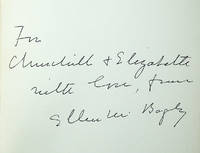 For
Churchill & Elizabeth
with love, from
Ellen M. Bagby